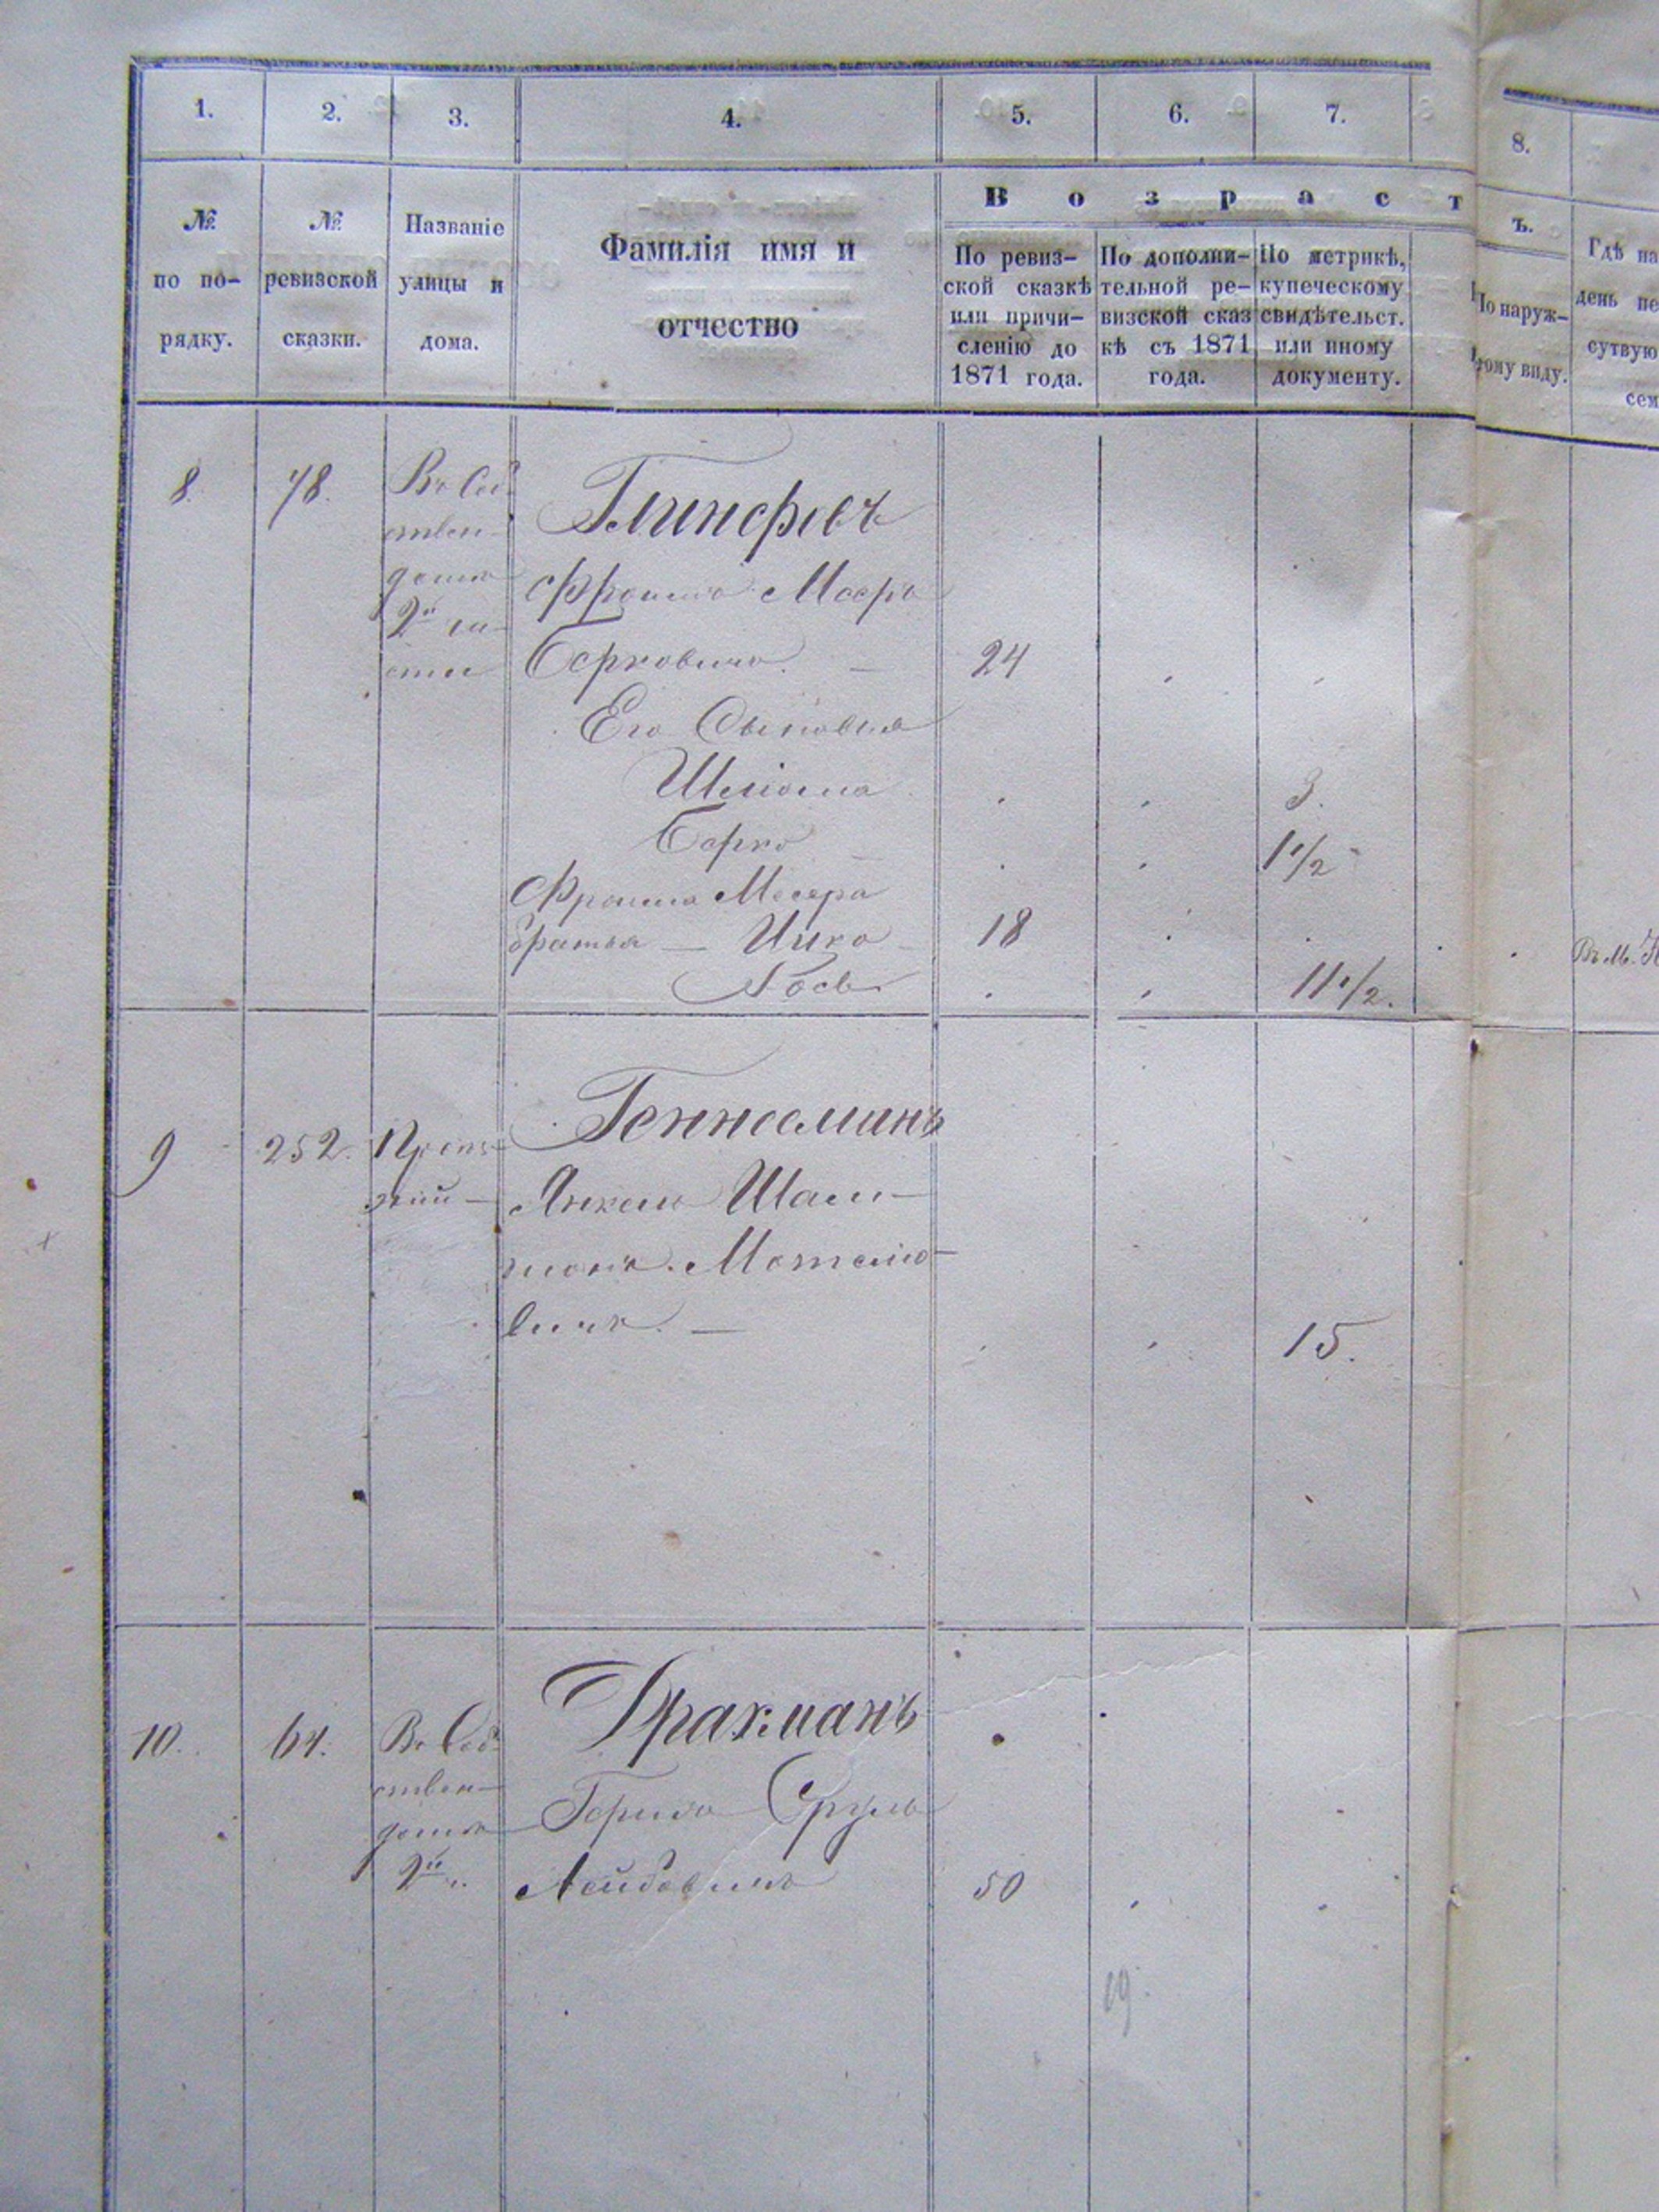 1. 2. 3. 4. 5. 6. 7. 8.
№ по по-рядку.
№ ревизской сказки.
Названіе улицы и дома.
Фамилія имя и отчество
Возрастъ.
По ревиз-
ской сказкѣ
или причи-
сленію до
1871 года.
По дополни-
тельной ре-
визской сказ
кѣ съ 1871
года.
По метрикѣ,
купеческому
свидѣтельст.
или иному
документу.
По наруж-
ному виду.
Гдѣ на
день пе
сутвую
сем
8. 78.
дома
2й ча-
сти
Мееръ
Берковичъ. — 24
Его Сыновья
Шліома 3.
Берко 1 1/2
Меера
братья — Ицко 18
Іось 11 1/2.
9 252.
Янкель Шам-
шонъ. Мотелио-
вичъ. — 15.
10. 61.
дома
2й
Драхманъ
Гершъ Сруль
Лейбовичъ 50
19.